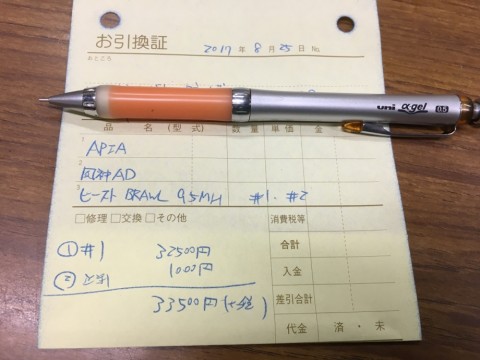 お引換証 2017年8月25日 No.
おところ
uni αgel 0.5
品 名 (型 式) 数量 単価 金
1 APIA
2 風神AD
3 ビースト BRAWL 95MH #1. #2
□修理 □交換 □その他 消費税等
合計
① #1 32500円
入金
② 1000円
差引合計
33500円(+税)
代金 済・未